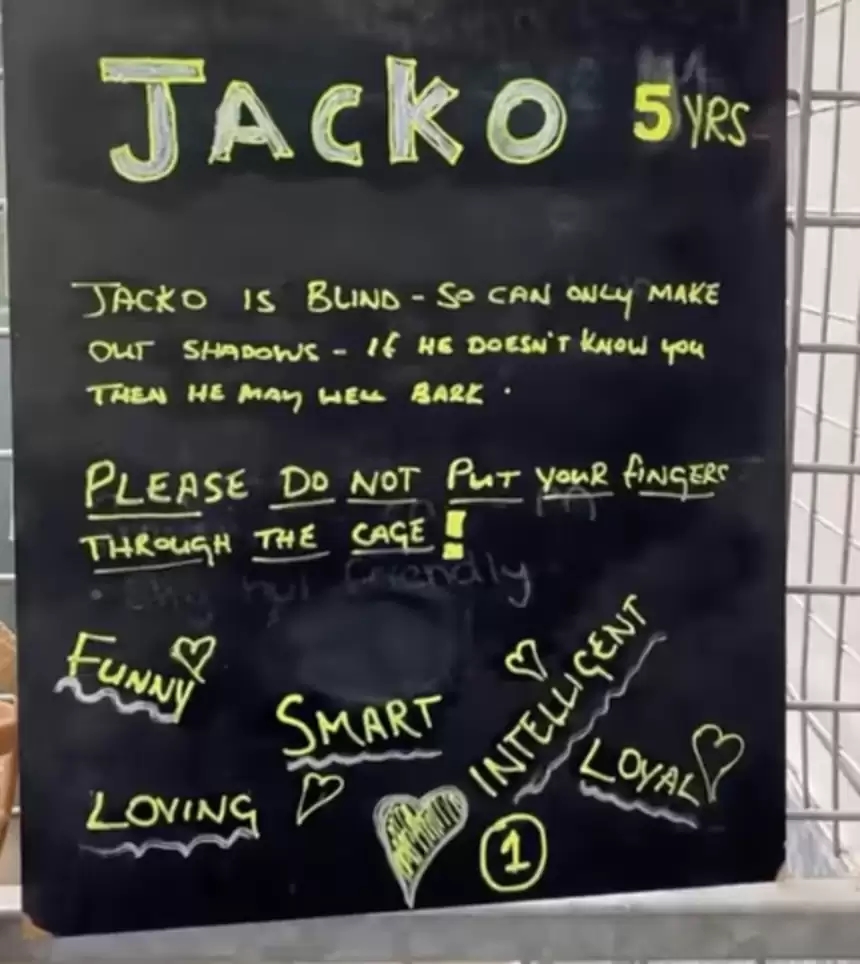 JACKO 5 YRS
JACKO IS BLIND - SO CAN ONLY MAKE
OUT SHADOWS - IF HE DOESN'T KNOW YOU
THEN HE MAY WELL BARK.
PLEASE DO NOT PUT YOUR FINGERS
THROUGH THE CAGE!
but friendly
FUNNY
SMART
INTELLIGENT
LOYAL
LOVING
1